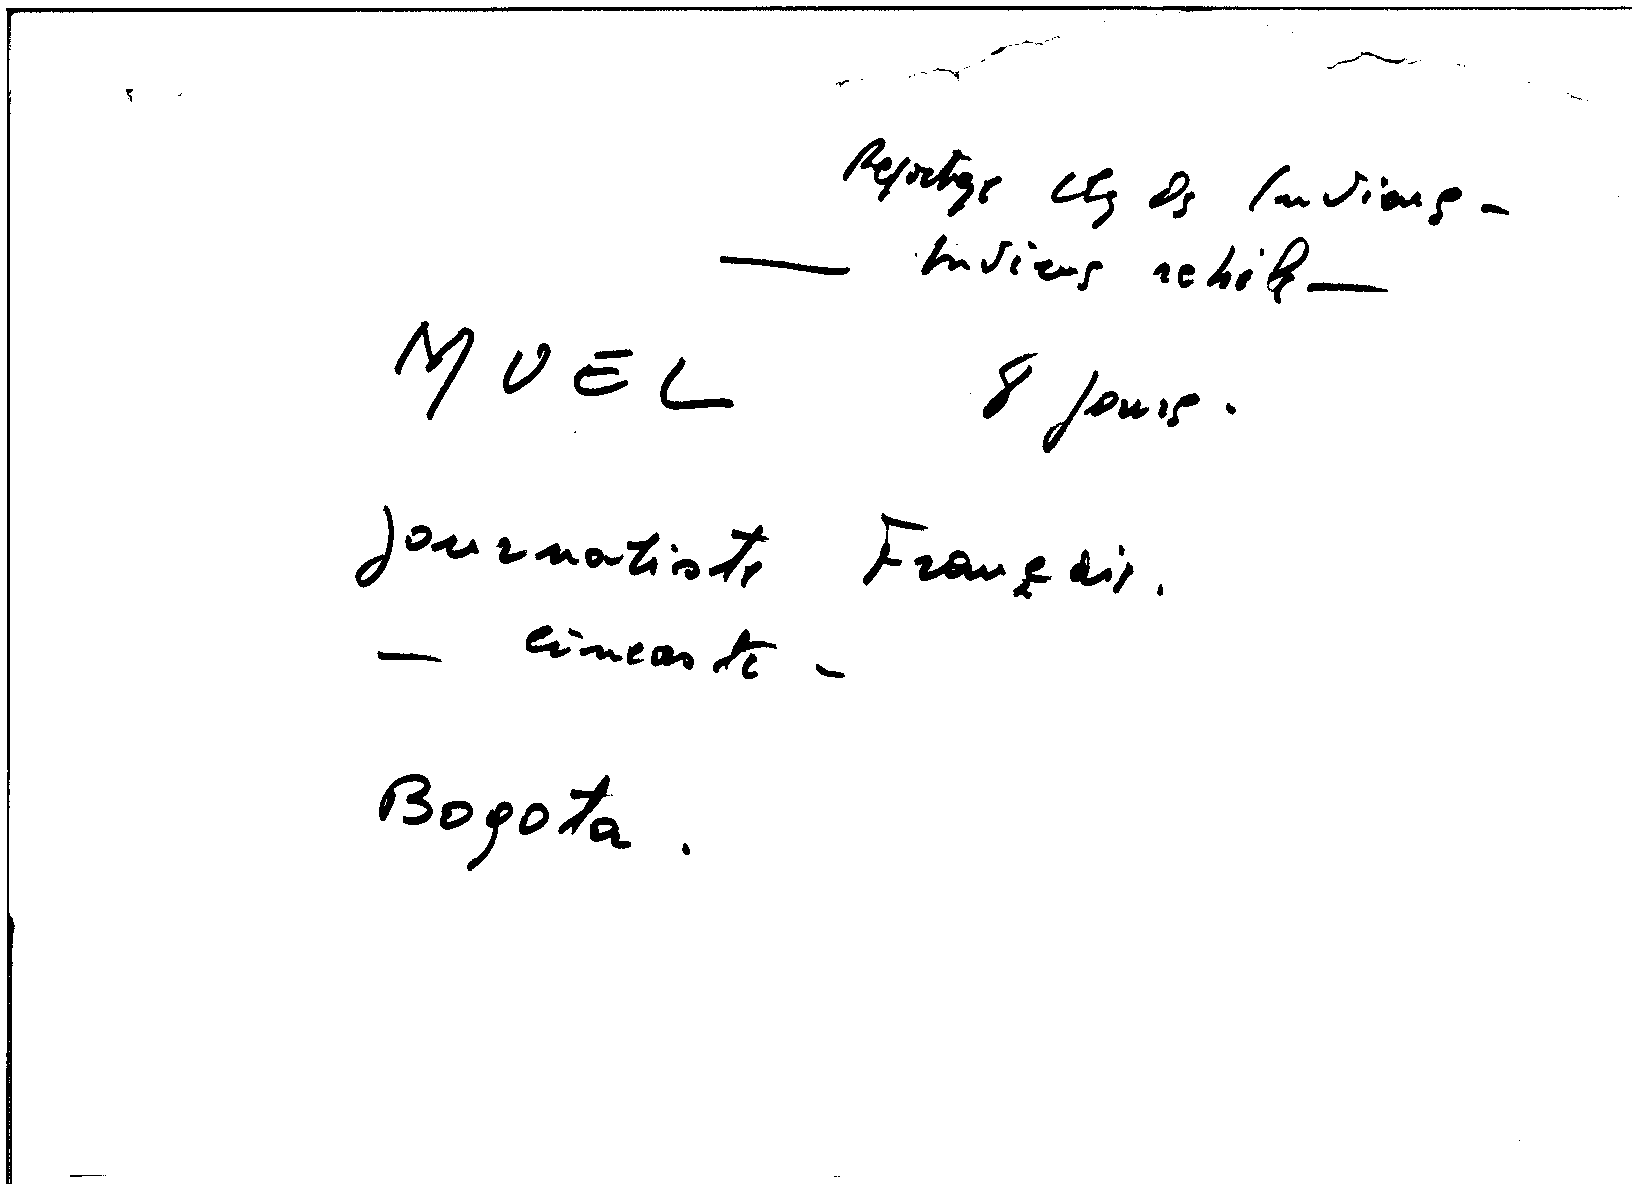 Reportage chez des Indiens -
— Indiens rebelles —
MUEL 8 jours.
Journaliste Français.
— cineaste -
Bogota.